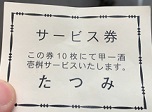 サービス券
この券10枚にて甲一酒
壱杯サービスいたします。
たつみ